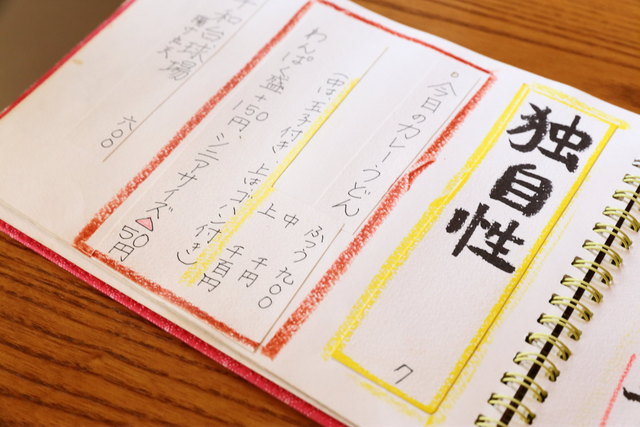 独自性
7
○今日のカレーうどん
ふつう 九〇〇
中 千円
上 千百円
(中は玉子付き、上はゴハン付き)
わんぱく盛+150円、シニアサイズ△50円
平和台球場
六〇〇